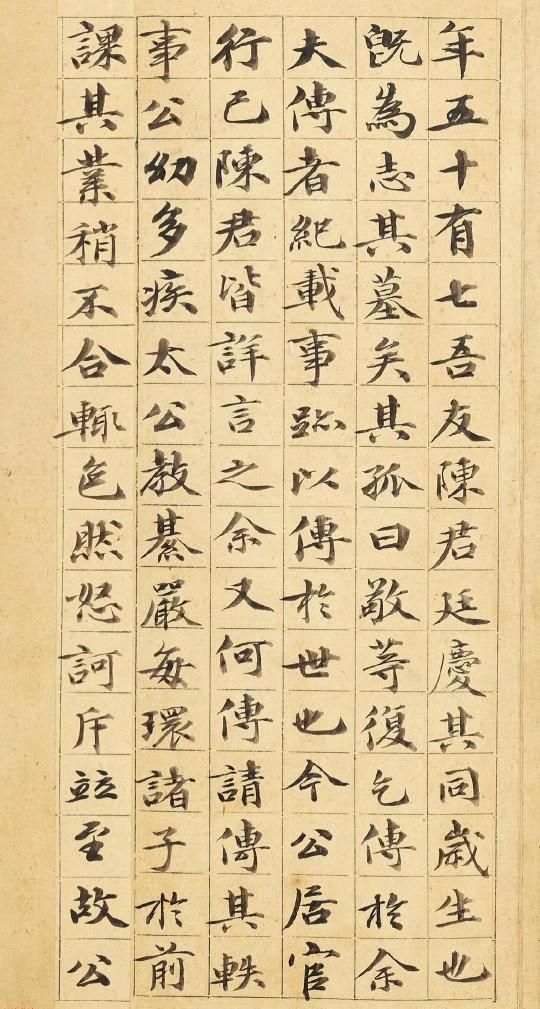 年五十有七吾友陳君廷慶其同歲生也
既為志其墓矣其孤曰敬等復乞傳於余
夫傳者紀載事跡以傳於世也今公居官
行己陳君皆詳言之余又何傳請傳其軼
事公幼多疾太公教綦嚴每環諸子於前
課其業稍不合輒色然怒訶斥竝至故公